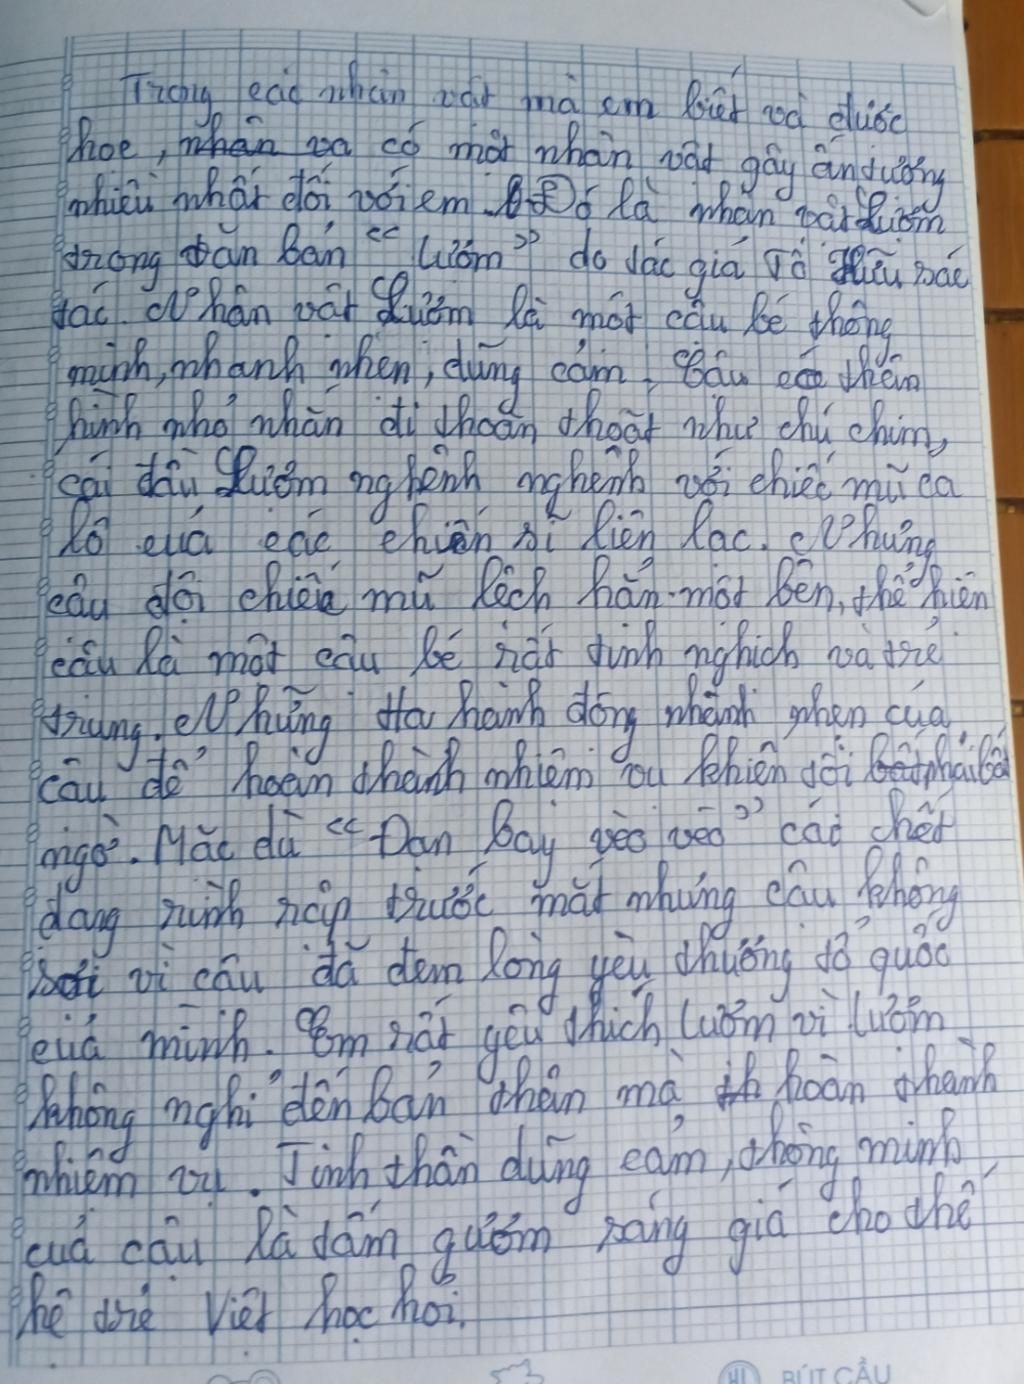 Trong các nhân vật mà em biết và được
học, nhân va có một nhân vật gây ấn tượng
nhiều nhất đối với em. Đó là nhân vật Lượm
trong văn bản “Lượm” do tác giả Tố Hữu sác
tác. Nhân vật Lượm là một cậu bé thông
minh, nhanh nhẹn, dũng cảm. Cậu có thân
hình nhỏ nhắn đi thoăn thoắt như chú chim,
cái đầu Lượm nghênh nghênh với chiếc mũ ca
lô của các chiến sĩ liên lạc. Nhưng
cậu đội chiếc mũ lệch hẳn một bên, thể hiện
cậu là một cậu bé rất tinh nghịch và trẻ
trung. Những hành động nhanh nhẹn của
cậu để hoàn thành nhiệm vụ khiến tôi phải bất
ngờ. Mặc dù “Đạn bay vèo vèo” cái chết
đang rình rập trước mắt nhưng cậu không
sợ vì cậu đã đem lòng yêu thương tổ quốc
của mình. Em rất yêu thích Lượm vì Lượm
không nghĩ đến bản thân mà hoàn thành
nhiệm vụ. Tinh thần dũng cảm, thông minh
của cậu là tấm gương sáng giá cho thế
hệ trẻ Việt học hỏi.
BÚT CẦU